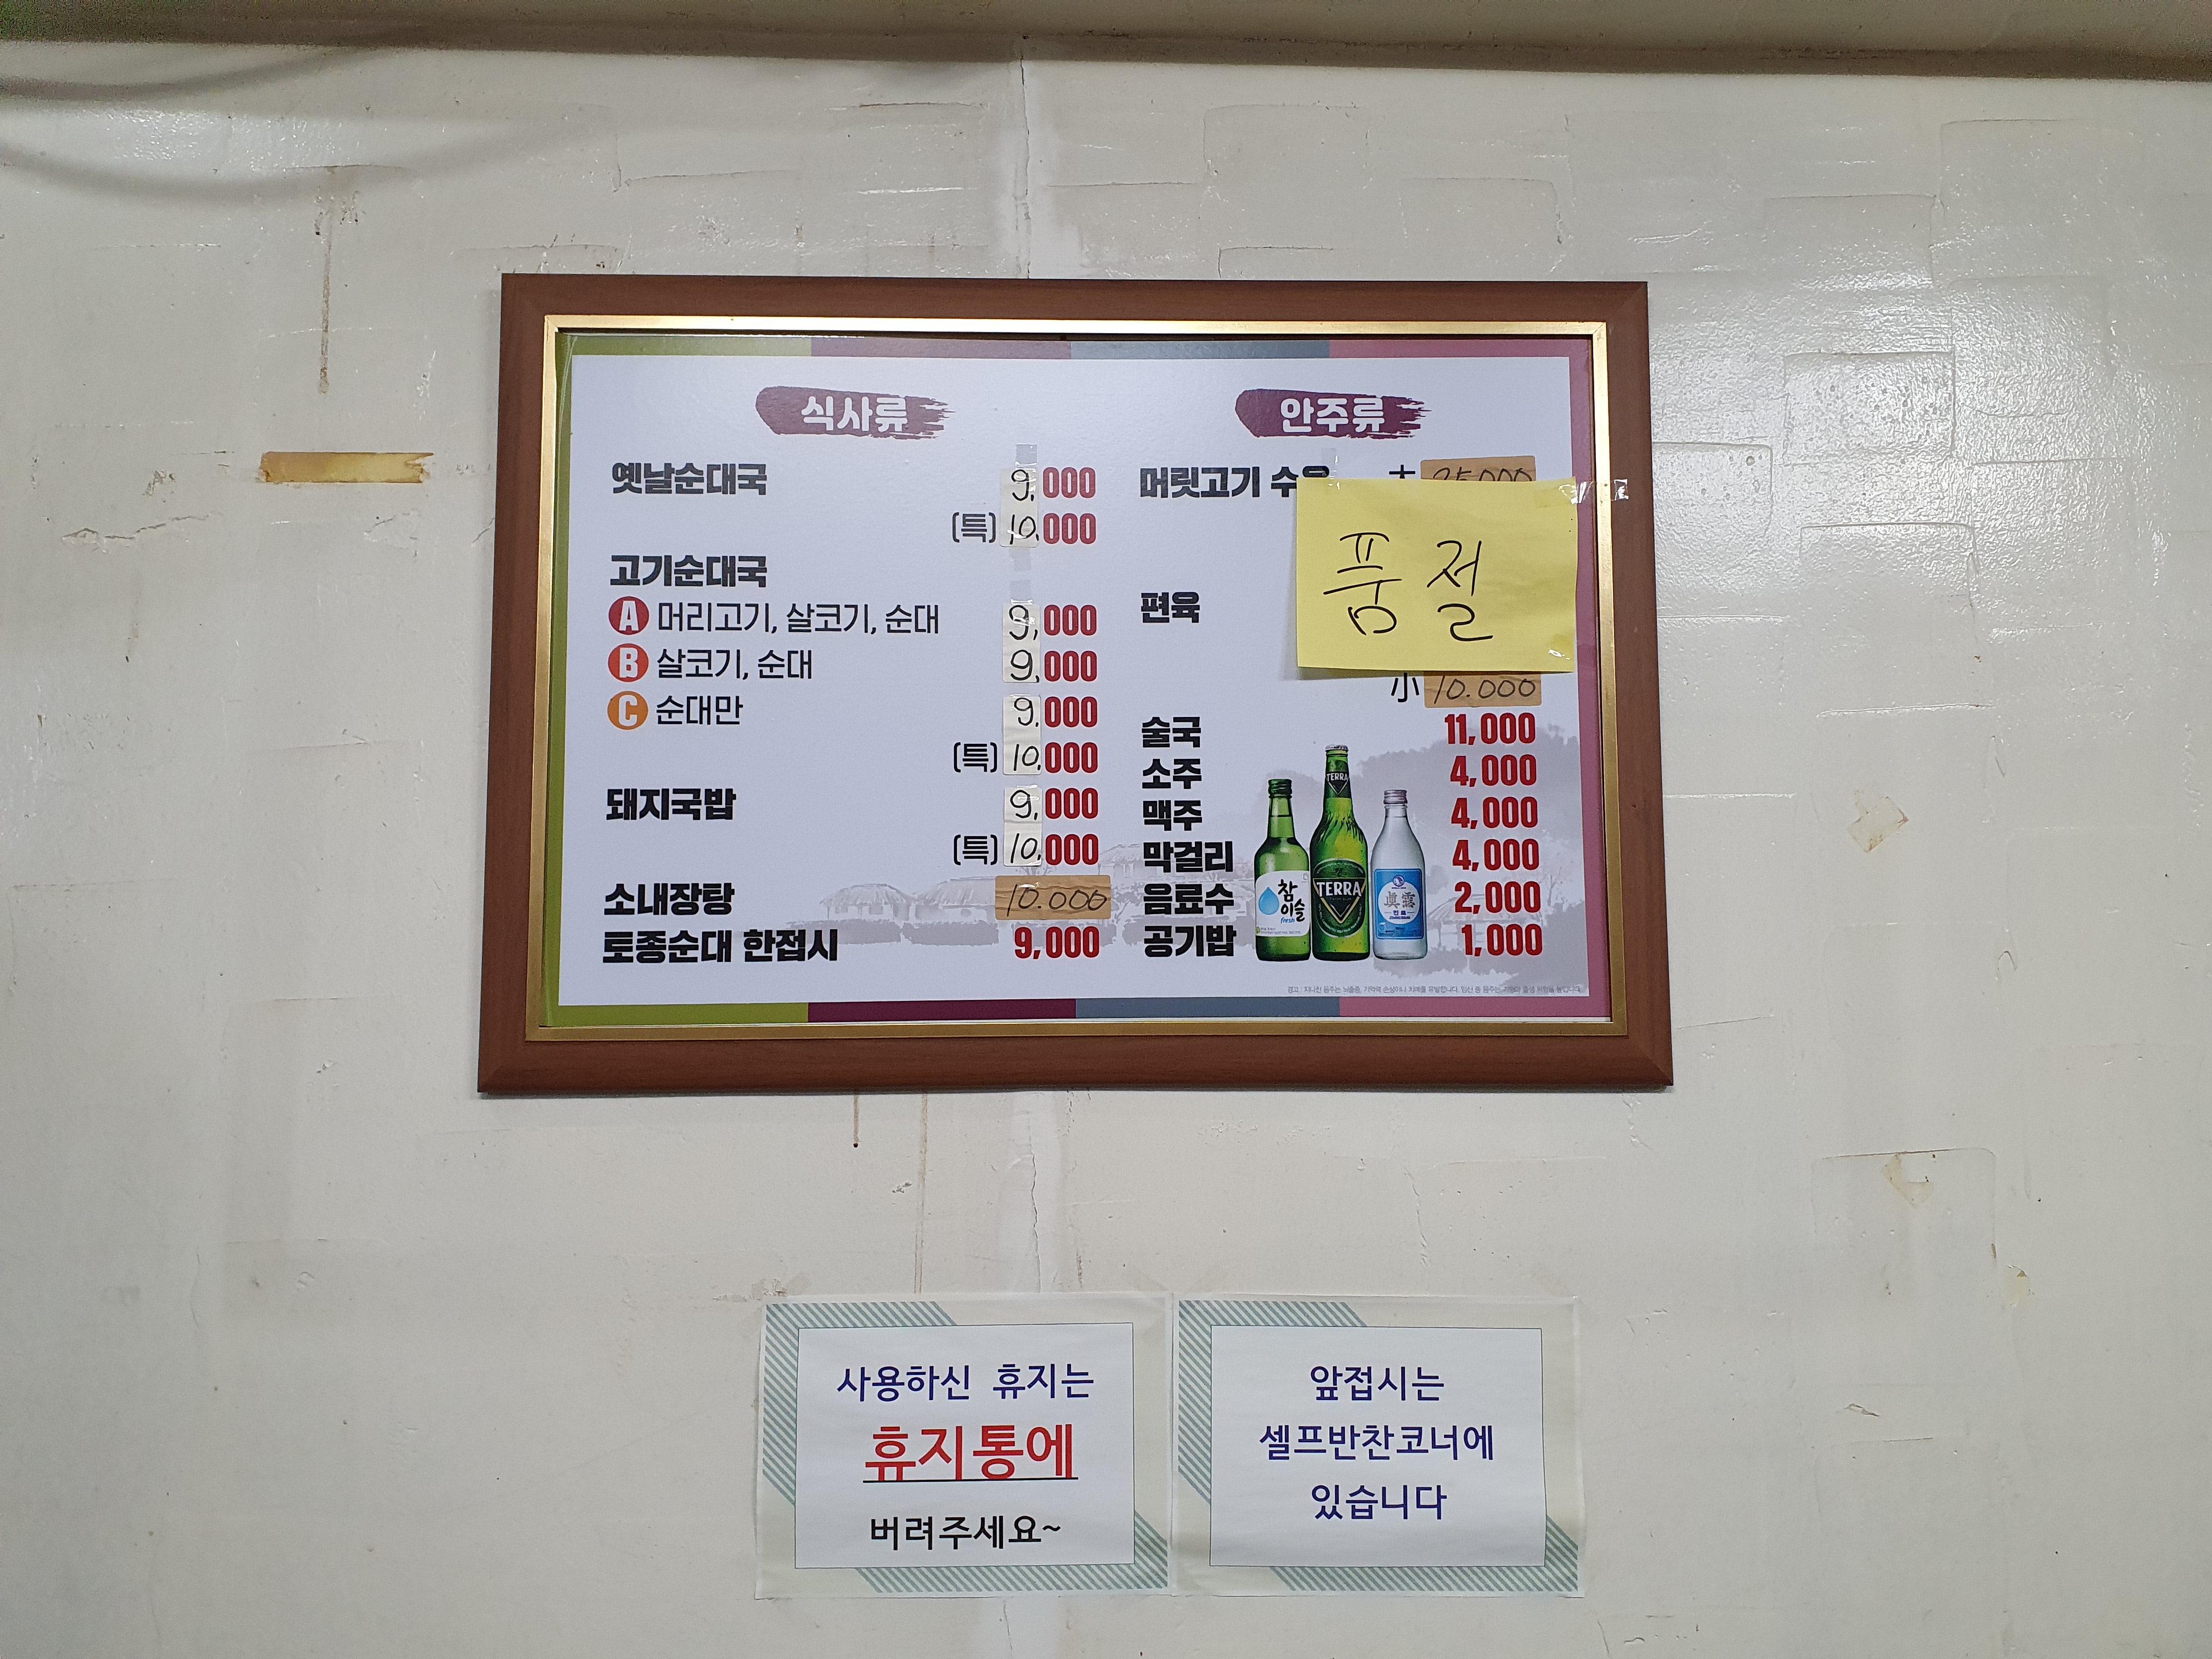 식사류
옛날순대국 9,000
(특) 10,000
고기순대국
A 머리고기, 살코기, 순대 9,000
B 살코기, 순대 9,000
C 순대만 9,000
(특) 10,000
돼지국밥 9,000
(특) 10,000
소내장탕 10.000
토종순대 한접시 9,000
안주류
머릿고기
품절
편육
小 10.000
술국 11,000
소주 4,000
맥주 4,000
막걸리 4,000
음료수 2,000
공기밥 1,000
참이슬
fresh
TERRA
TERRA
眞露
사용하신 휴지는
휴지통에
버려주세요~
앞접시는
셀프반찬코너에
있습니다